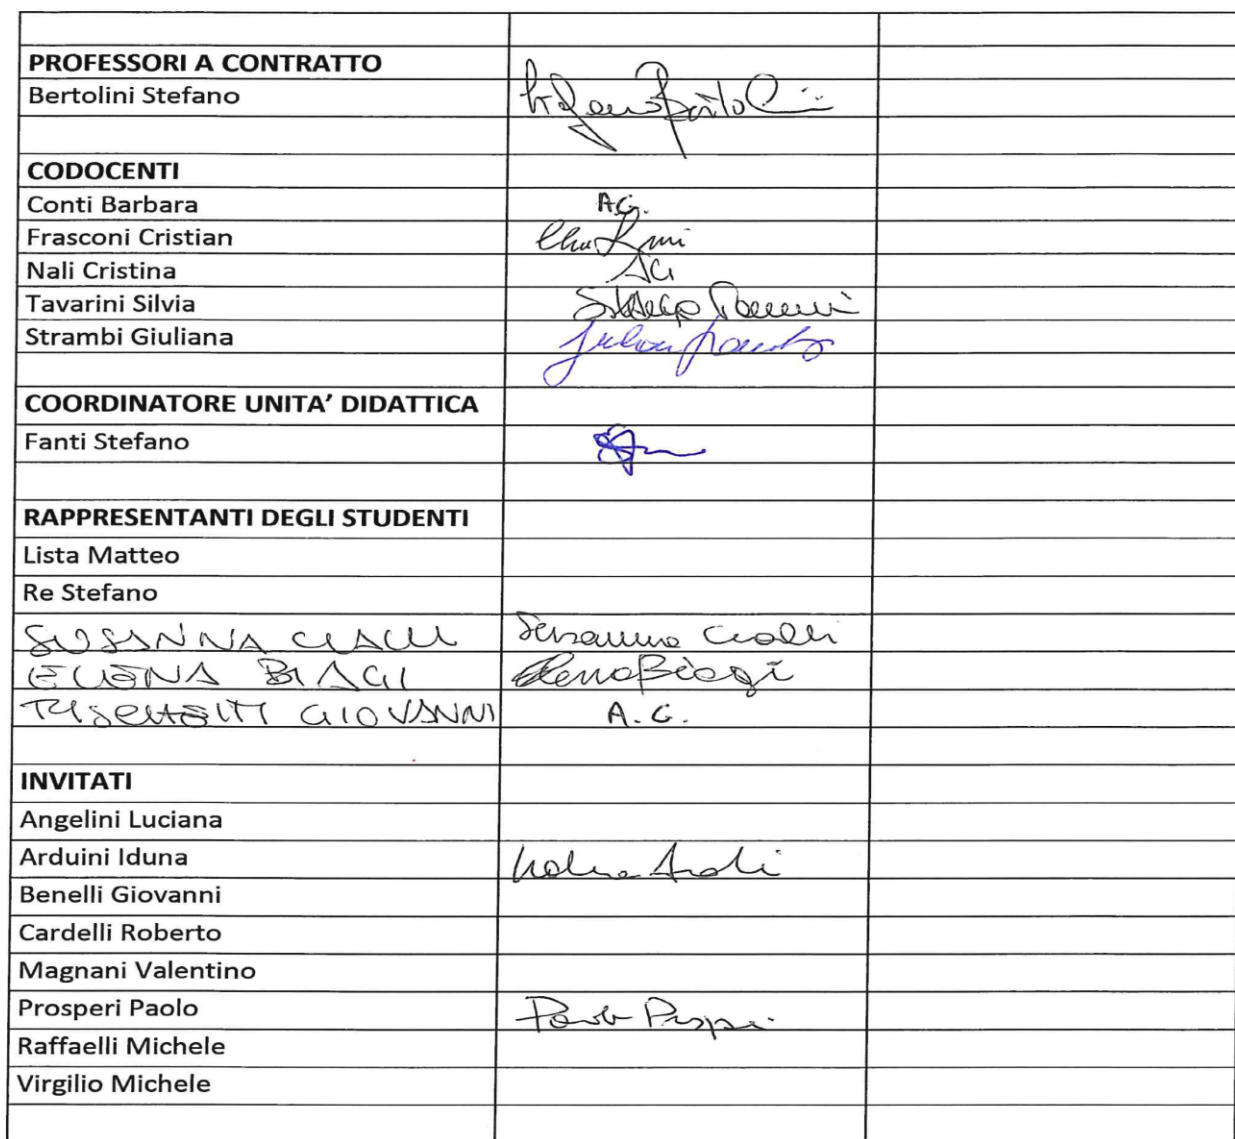 PROFESSORI A CONTRATTO
Bertolini Stefano
CODOCENTI
Conti Barbara A.G.
Frasconi Cristian
Nali Cristina AG
Tavarini Silvia
Strambi Giuliana
COORDINATORE UNITA’ DIDATTICA
Fanti Stefano
RAPPRESENTANTI DEGLI STUDENTI
Lista Matteo
Re Stefano
SUSANNA CIALLI Susanna Cialli
ELENA BIAGI Elena Biagi
GIOVANNI A.G.
INVITATI
Angelini Luciana
Arduini Iduna
Benelli Giovanni
Cardelli Roberto
Magnani Valentino
Prosperi Paolo Paolo Prosperi
Raffaelli Michele
Virgilio Michele